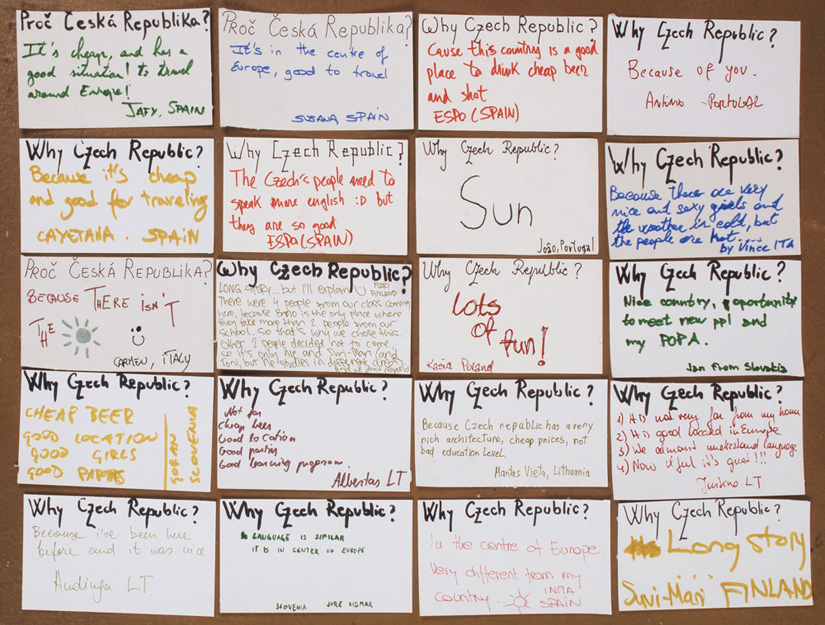 Proč Česká Republika?
It's cheap, and has a
good situation! to travel
around Europe!
JAFY, SPAIN
Proč Česká Republika?
It's in the centre of
Europe, good to travel
SUSANA SPAIN
Why Czech Republic?
Cause this country is a good
place to drink cheap beer
and shot
ESPO (SPAIN)
Why Czech Republic?
Because of you.
PORTUGAL
Why Czech Republic?
Because it's cheap
and good for traveling
CAYETANA. SPAIN
Why Czech Republic?
The Czech's people need to
speak more english :D but
they are so good
ESPO (SPAIN)
Why Czech Republic?
Sun
João, Portugal
Why Czech Republic?
Because there are very
nice and sexy girls and
the weather is cold, but
the people are hot
by Vince ITA
Proč Česká Republika?
BECAUSE THERE ISN'T
THE
CARMEN, ITALY
Why Czech Republic?
LONG STORY... but I'll explain
FINLAND
There were 4 people from our class coming
here, because Brno is the only place where
they take more than 2 people from our
school. So that's why we chose this.
Other 2 people decided not to come
so it's only me and Suni-Mari (and
Toni, but he studies in different
Why Czech Republic?
Lots
of
fun!
Kasia Poland
Why Czech Republic?
Nice country, opportunity
to meet new ppl and
my POPA.
Jan from Slovakia
Why Czech Republic?
CHEAP BEER
GOOD LOCATION
GOOD GIRLS
GOOD PARTIES
GORAN
SLOVENIA
Why Czech Republic?
Not far
Cheap beer
Good location
Good parties
Good learning program.
Albertas LT
Why Czech Republic?
Because Czech republic has a very
rich architecture, cheap prices, not
bad education level.
Mantas Vieta, Lithuania
Why Czech Republic?
1) It is not very far from my home
2) It is good located in Europe
3) We can understand language
4) Now I feel it's great!!!
LT
Why Czech Republic?
Because i've been here
before and it was nice
Audinga LT
Why Czech Republic?
LANGUAGE IS SIMILAR
IT IS IN CENTER OF EUROPE
SLOVENIA JURE VIDMAR
Why Czech Republic?
In the centre of Europe.
Very different from my
country.
INMA
SPAIN
Why Czech Republic?
Long story
Suni-Mari FINLAND